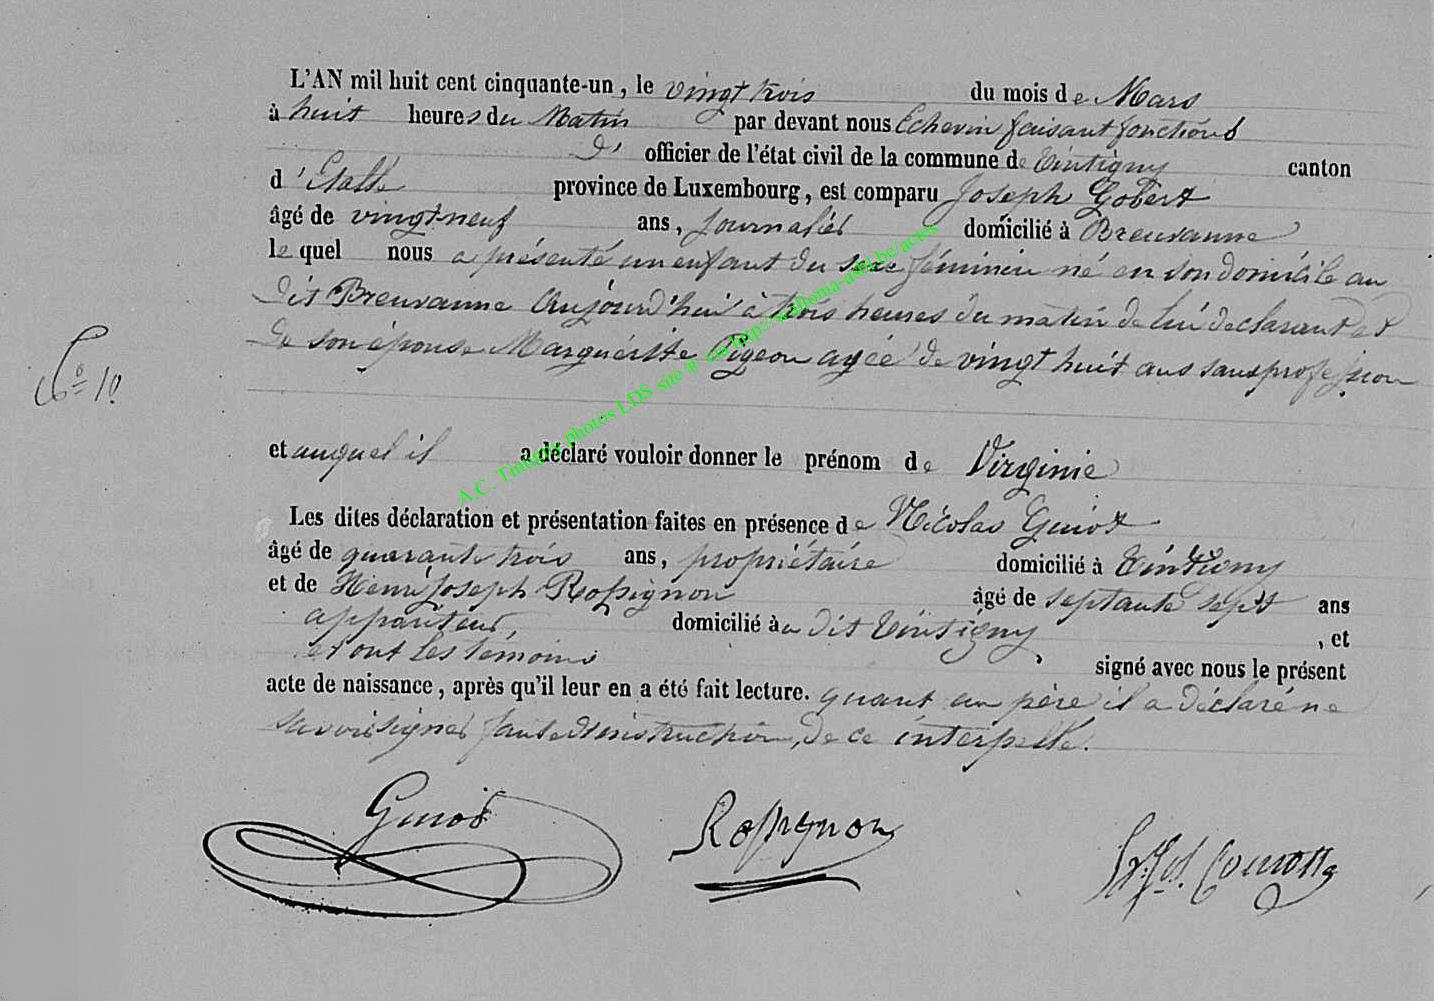 L'AN mil huit cent cinquante-un, le vingt trois du mois de Mars
à huit heures du Matin par devant nous Echevin faisant fonctions
d' officier de l'état civil de la commune de Tintigny canton
d'Etalle province de Luxembourg, est comparu Joseph Gobert
âgé de vingt neuf ans, journalier domicilié à Breuvanne
le quel nous a présenté un enfant du sexe féminin né en son domicile au
dit Breuvanne aujourd'hui à trois heures du matin de lui déclarant et
de son épouse Marguerite Pigeon agée de vingt huit ans sans profession
N° 10
et auquel il a déclaré vouloir donner le prénom de Virginie
Les dites déclaration et présentation faites en présence de Nicolas Guiot
âgé de quarante trois ans, propriétaire domicilié à Tintigny
et de Henri Joseph Rossignon âgé de septante sept ans
appariteur domicilié au dit Tintigny, et
et ont les témoins signé avec nous le présent
acte de naissance, après qu'il leur en a été fait lecture. quant au père il a déclaré ne
savoir signer faute d'instruction, de ce interpellé.
Guiot Rossignon
A.C. Tintigny photos LDS site @ via http://wallonia-asbl.be/actes